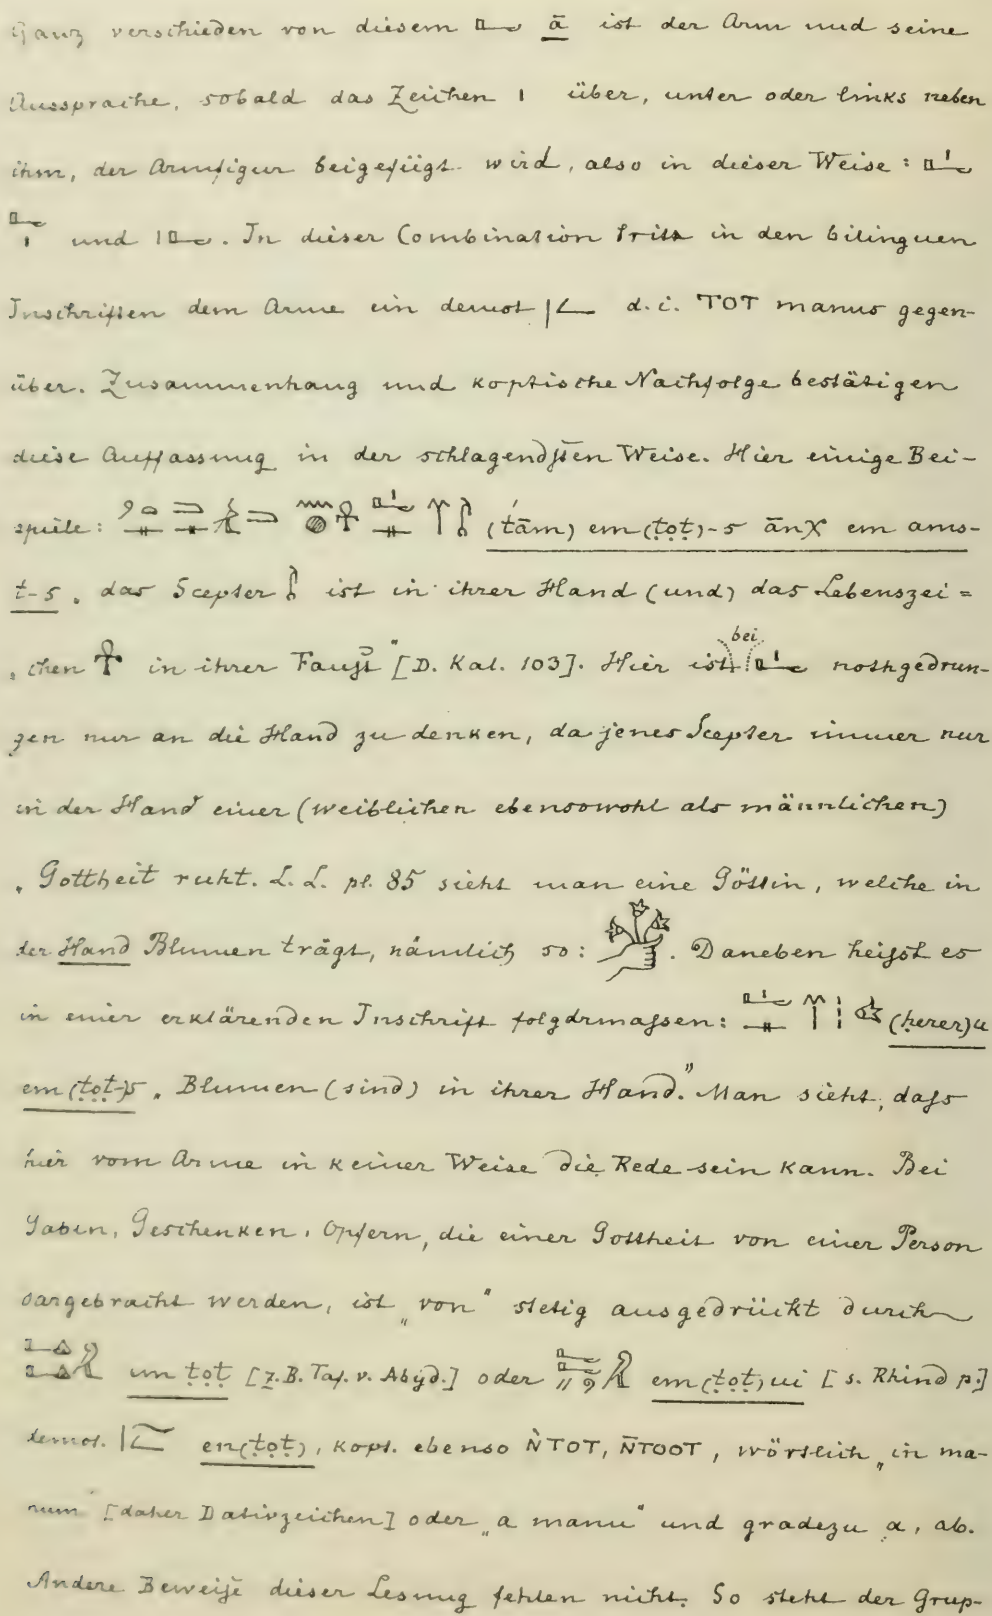 Ganz verschieden von diesem 𓂝 ā ist der Arm und seine
Aussprache, sobald das Zeichen 𓏤 über, unter oder links neben
ihm, der Armfigur beigefügt wird, also in dieser Weise: 𓏤𓂝
𓂝𓏤 und 𓏤𓂝. In dieser Combination tritt in den bilinguen
Inschriften dem Arme ein demot d. i. TOT manus gegen-
über. Zusammenhang und koptische Nachfolge bestätigen
diese Auffassung in der schlagendsten Weise. Hier einige Bei-
spiele: (t́ām) em (ṭoṭ)-s ānχ em ams-
t-s „das Scepter 𓌀 ist in ihrer Hand (und) das Lebenszei=
„chen 𓋹 in ihrer Faust" [D. Kal. 103]. Hier ist bei 𓂝𓏤 nothgedrun-
gen nur an die Hand zu denken, da jenes Scepter immer nur
in der Hand einer (weiblichen ebensowohl als männlichen)
„Gottheit ruht. L. L. pl. 85 sieht man eine Göttin, welche in
der Hand Blumen trägt, nämlich so: . Daneben heisst es
in einer erklärenden Inschrift folgdrmassen: (ḥerer)u
em (ṭoṭ)-s „Blumen (sind) in ihrer Hand." Man sieht, dass
hier vom Arme in keiner Weise die Rede sein kann. Bei
Gaben, Geschenken, Opfern, die einer Gottheit von einer Person
dargebracht werden, ist „von" stetig ausgedrückt durch
um ṭoṭ [z. B. Taf. v. Abyd.] oder em (ṭoṭ) ui [s. Rhind p.]
demot. en (ṭoṭ), kopt. ebenso ǸTOT, N̄TOOT, wörtlich „in ma-
num" [daher Dativzeichen] oder „a manu" und gradezu a, ab.
Andere Beweise dieser Lesung fehlen nicht. So steht der Grup-